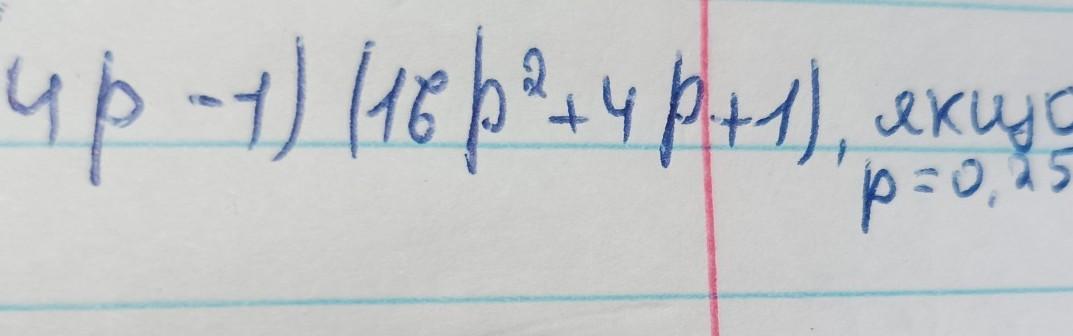 4p-1) (16p²+4p+1), якщо
p=0,25